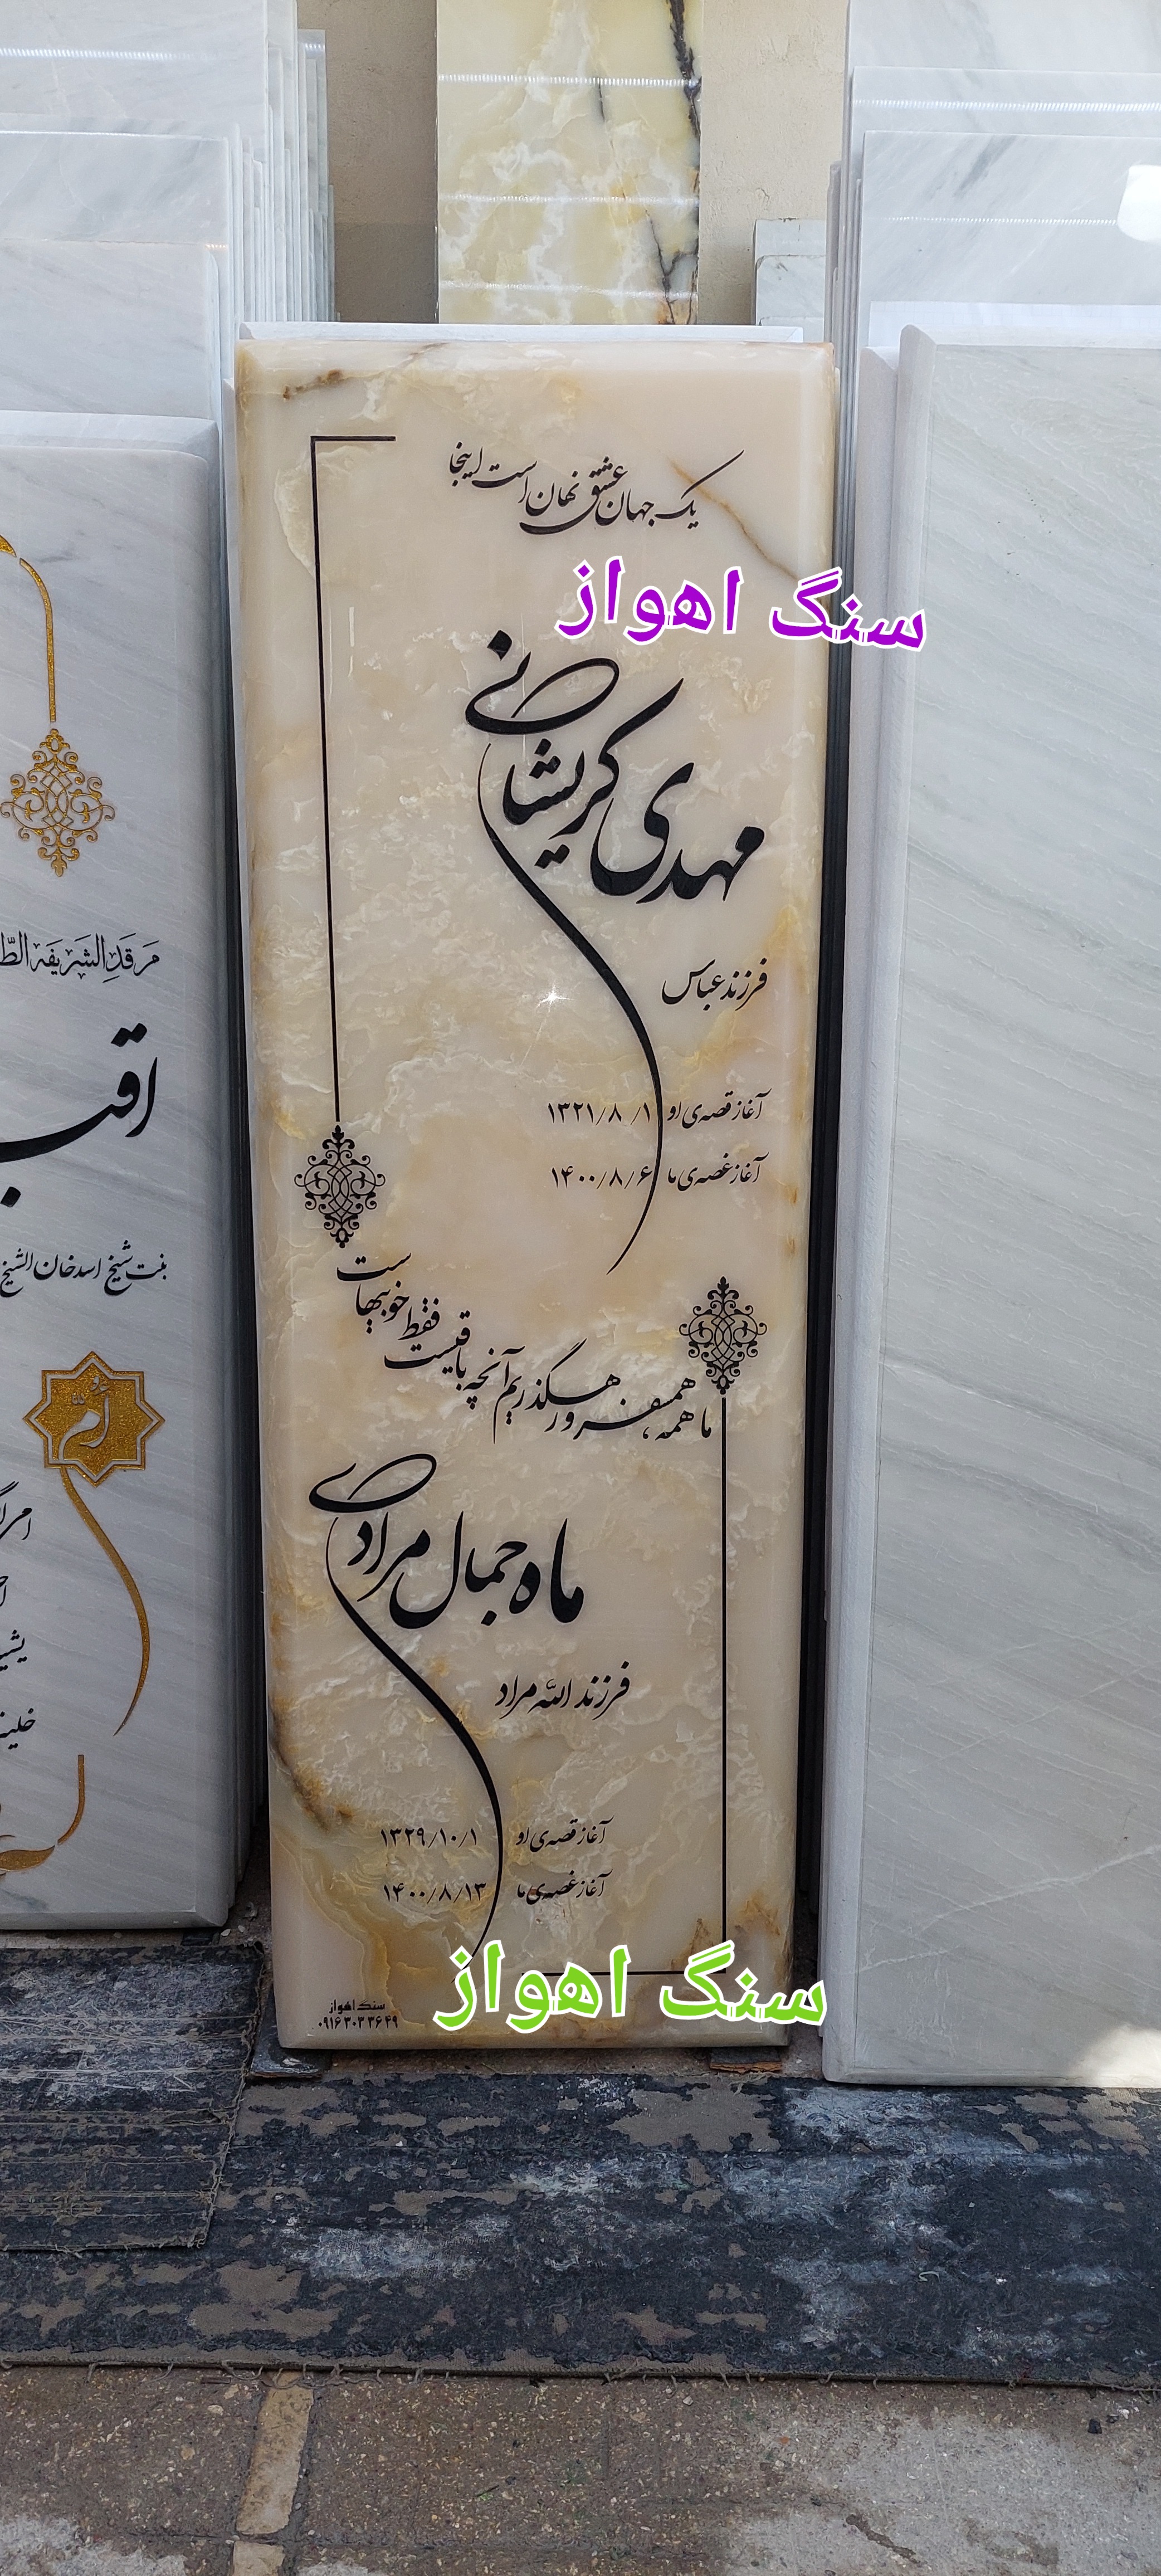 یک جهان عشق نهان است اینجا
سنگ اهواز
مهدی کریشانی
فرزند عباس
آغاز قصه‌ی او ۱۳۲۱/۸/۱
آغاز غصه‌ی ما ۱۴۰۰/۸/۶
ما همه، همسفر و رهگذریم آنچه باقیست فقط خوبیهاست
ماه جمال مرادی
فرزند الله مراد
آغاز قصه‌ی او ۱۳۲۹/۱۰/۱
آغاز غصه‌ی ما ۱۴۰۰/۸/۱۳
سنگ اهواز
سنگ اهواز
۰۹۱۶ ۳۰۳ ۳۶ ۴۹
مَرقَدِ الشَریفَه الطّ
اقب
بنت شیخ اسدخان الشیخ
أُمّ